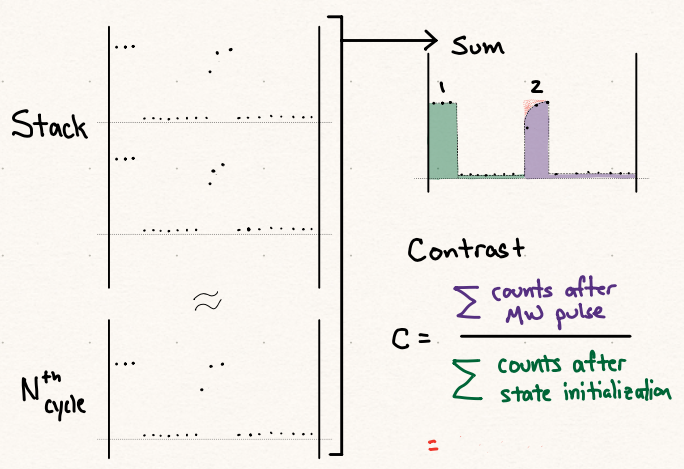 Stack
Nth
cycle
Sum
1 2
Contrast
C = ∑ counts after
MW pulse
∑ counts after
state initialization
=